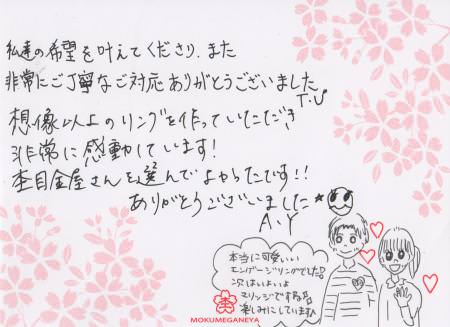 私達の希望を叶えてくださり、また
非常にご丁寧なご対応ありがとうございました。
T.U
想像以上のリングを作っていただき
非常に感動しています!
杢目金屋さんを選んでよかったです!!
ありがとうございました★
A.Y
本当に可愛いい
エンゲージリングでした。
次はいよいよ
マリッジですね。
楽しみにしています
MOKUMEGANEYA